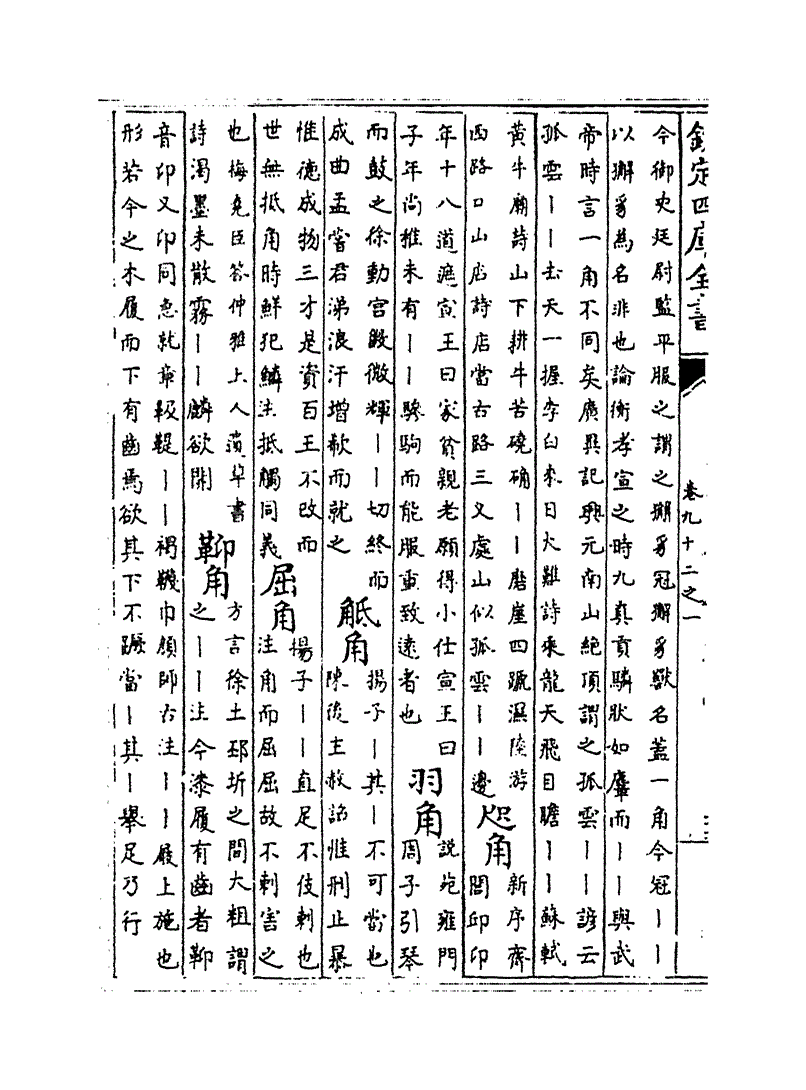 欽定四庫全書
卷九十二之一
今御史廷尉監平服之謂之獬豸冠獬豸獸名蓋一角今冠丨丨
以獬豸為名非也論衡孝宣之時九真貢麟狀如麞而丨丨與武
帝時言一角不同矣廣異記興元南山絶頂謂之孤雲丨丨諺云
孤雲丨丨去天一握李白來日大難詩乘龍天飛目瞻丨丨蘇軾
黄牛廟詩山下耕牛苦磽确丨丨磨崖四蹄濕陸游
西路口山店詩店當古路三叉處山似孤雲丨丨邊
咫角
新序齊
閭邱卬
年十八道遮宣王曰家貧親老願得小仕宣王曰
子年尚稚未有丨丨驂駒而能服重致遠者也
羽角
說苑雍門
周子引琴
而鼓之徐動宫徵微輝丨丨切終而
成曲孟嘗君涕浪汗增欷而就之
觝角
揚子丨其丨不可當也
陳後主赦詔惟刑止暴
惟德成物三才是資百王不改而
世無抵角時鮮犯鱗注抵觸同義
屈角
揚子丨丨直足不伎刺也
注角而屈屈故不刺害之
也梅堯臣答仲雅上人遺草書
詩濁墨未散霧丨丨麟欲開
䩕角
方言徐土邳圻之間大粗謂
之丨丨注今漆履有齒者䩕
音卬又卬同急就章靸鞮丨丨褐韈巾顔師古注丨丨屐上施也
形若今之木履而下有齒焉欲其下不蹶當丨其丨舉足乃行